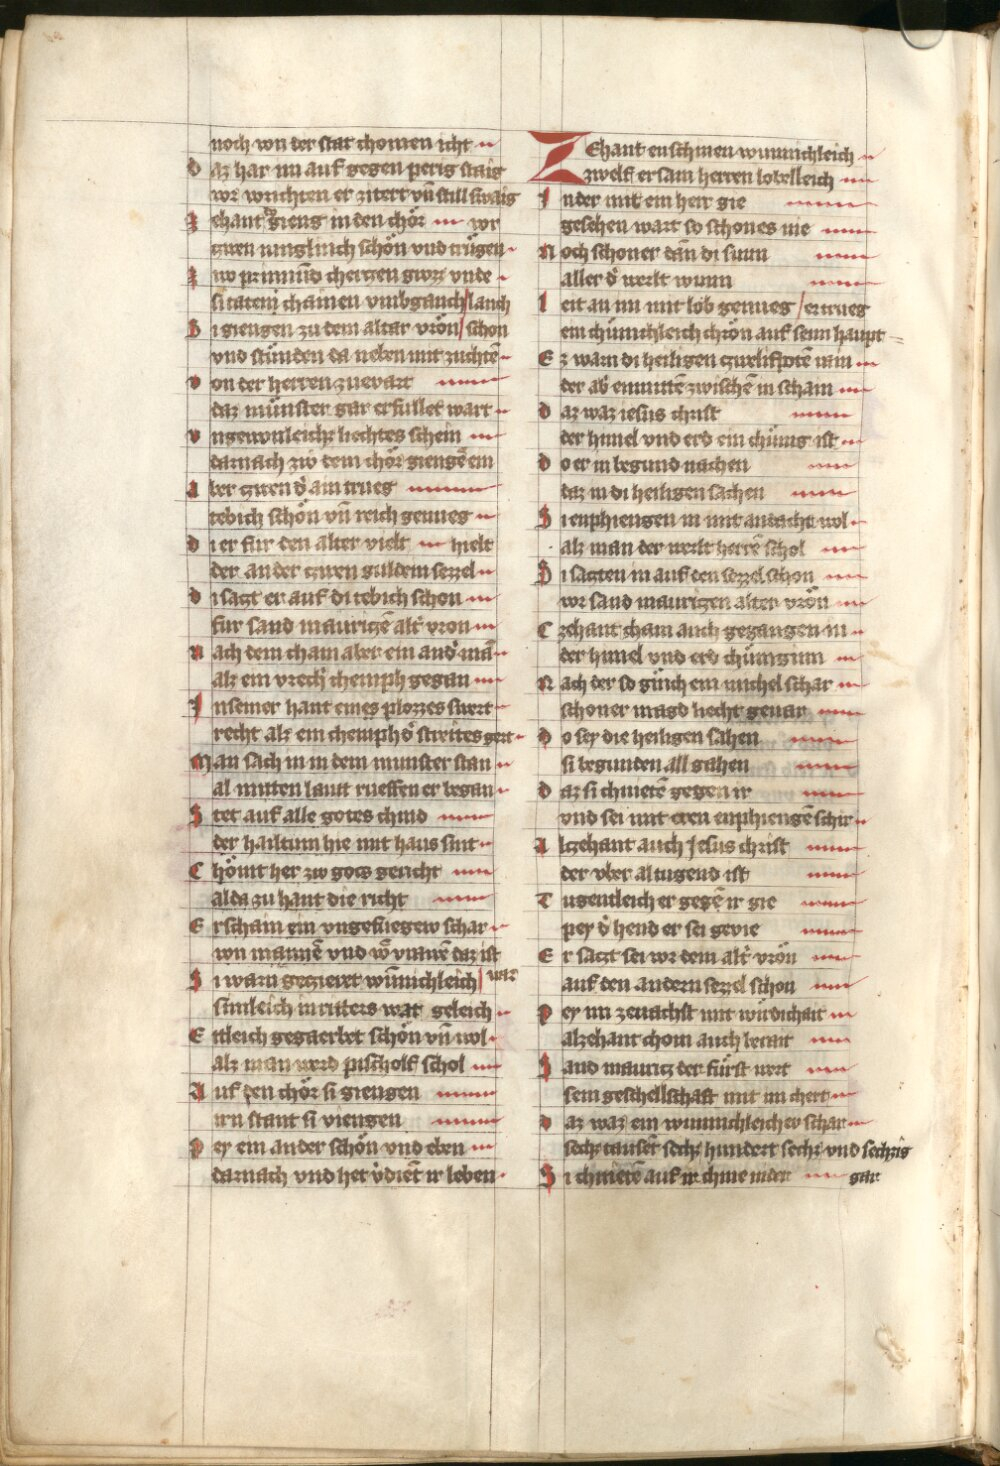 noch von der stat chomen icht
Daz har im auf gegen perig staig
vor vorichten er zitert vñ still swaig
Zehant gieng in den chör wr
zwen iunglinch schön vnd trůgen
Zwo prinnũd cherczen gwz vnde
si taten chamen vmbganch / lanch
Si giengen zu dem altar vrön / schon
vnd stůnden da neben mit zuchtẽ
Von der herren zuevart
daz můnster gar erfullet wart
Vngewonleichz liechtes schein
darnach zw dem chör giengẽ ein
Aber zwen d' ain trueg
tebich schön vñ reich genueg
Dier fur den alter vielt hielt
der ander zwen guldein sezzel
Di sazt er auf di tebich schon
fur sand mauriczẽ alt' vron
Nach dem cham aber ein and' mã
alz ein vrech' chemph gegan
In seiner hant eines plozzes swert
recht alz ein chemph d' streites gert
Man sach in in dem munster stan
al mitten laut rueffen er began
Stet auf alle gotes chind
der hailtum hie mit haus sint
Chömt her zw gotz gericht
alda zu hant die richt
Erschain ein vngefuegew schar
von mannẽ vnd võ vrawẽ daz ist
Si warn geczieret wũnichleich / war
sumleich in ritters wat geleich
Etleich gegaerbet schön vñ wol
alz man werd pischolf schol
Auf den chör si giengen
irn stant si viengen
Pey ein ander schön vnd eben
darnach vnd het v'dient ir leben
Zehant enschinen wunnichleich
zwelf ersam herren lobelleich
Inder mit ein herr gie
gesehen wart so schones nie
Noch schoner dañ di sunn
aller d' werlt wunn
Leit an im mit lob genueg / er trueg
ein chůnichleich chrön auf seim haupt
Ez warn di heiligen zwelifpotẽ mit im
der ab' enmittẽ zwischẽ in scham
Daz waz iesus christ
der himel vnd erd ein chůnig ist
Do er in begund nachen
daz in di heiligen sachen
Si enphiengen in mit andacht wol
alz man der werlt herrẽ schol
Di sazten in auf den sezzel schon
vor sand mauriczen alter vrön
Czehant cham auch gegangen in
der himel vnd erd chünigynn
Nach der so ginch ein michel schar
schoner magd liecht gevar
Do sey die heiligen sahen
si begunden all gahen
Daz si chnietẽ gegen ir
vnd sei mit eren enphiengẽ schir
Alczehant auch Jesus christ
der vber al tugend ist
Tugentleich er gegẽ ir gie
pey d' hend er sei gevie
Er sazt sei vor dem alt' vrön
auf den andern sezzel schon
Pey im zenachst mit wirdichait
alzehant chom auch berait
Sand mauricz der fürst wert
sein geschellschaft mit im chert
Daz waz ein wunnichleichew schar
sechz tausent sechz hundert sechz vnd sechzig
Si chnietẽ auf ir chnie nider gar